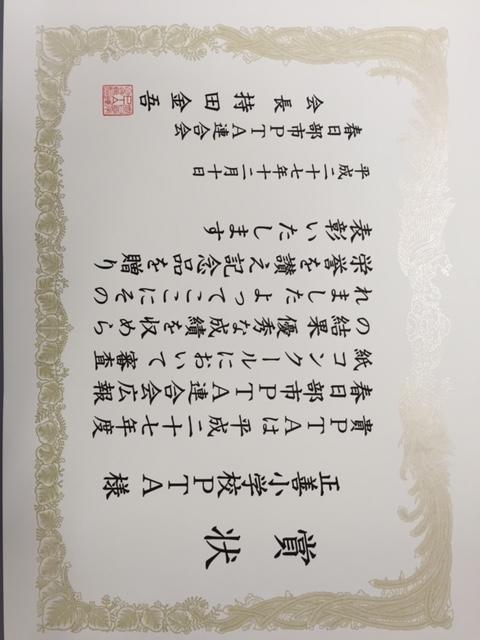 賞状
正善小学校PTA様
貴PTAは平成二十七年度
春日部市PTA連合会広報
紙コンクールにおいて審査
の結果優秀な成績を収めら
れましたよってここにその
栄挙を讃え記念品を贈り
表彰いたします
平成二十七年十二月十日
春日部市PTA連合会
会長持田金吾